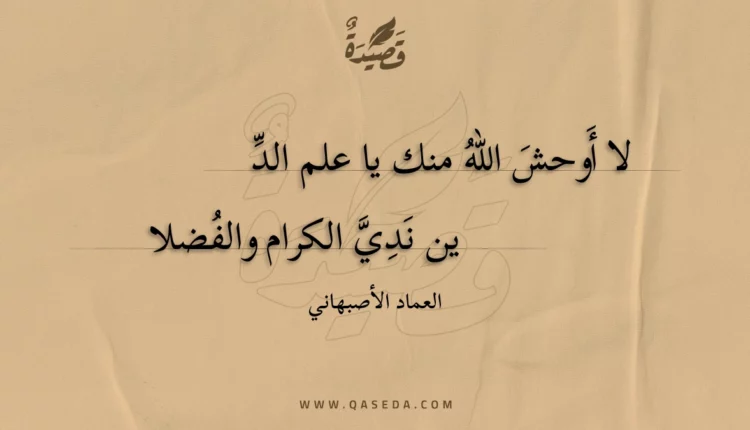 قَصِيْدَةٌ
لا أَوحشَ اللّٰهُ منك يا علم الدِّ
ين نَدِيَّ الكرام والفُضلا
العماد الأصبهاني
WWW.QASEDA.COM